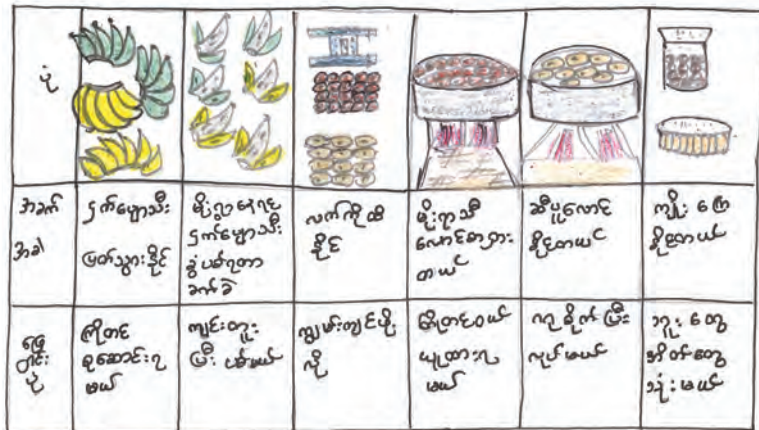 ပုံ
အခက်
အခါ
ငှက်ပျောသီး
ပြတ်သွားနိုင်
မိုးရွာနေရင်
ငှက်ပျောသီး
ခွဲပစ်ရတာ
ခက်ခဲ
လက်ကိုထိ
နိုင်
မိုးရာသီ
လောင်စာရှား
တယ်
ဆီပူလောင်
နိုင်တယ်
ကျိုး ကြေ
နိုင်တယ်
ဖြေ
ရှင်း
ပုံ
ကြိုတင်
စုဆောင်းရ
မယ်
ပြီး
ကျွမ်းကျင်ဖို့
လို
ကြိုတင်ဝယ်
ယူထားရ
မယ်
ဂရုစိုက်ပြီး
လုပ်မယ်
ဘူး တွေ
အိတ်တွေ
သုံးမယ်